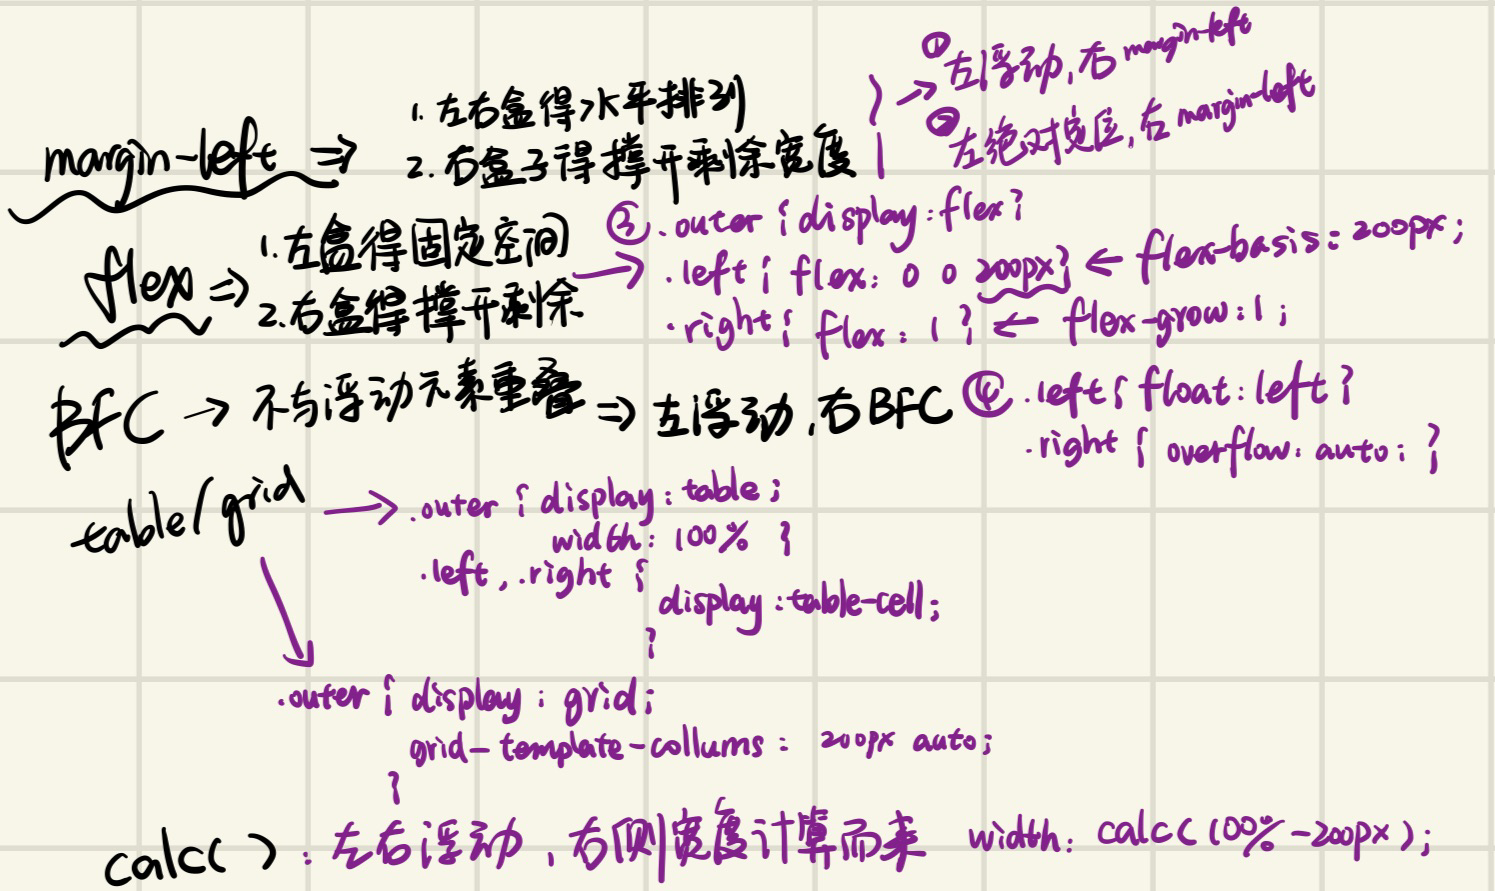 margin-left ⇒ 1. 左右盒得水平排列
2. 右盒子得撑开剩余宽度
→ ① 左浮动, 右 margin-left
② 左绝对定位, 右 margin-left
flex ⇒ 1. 左盒得固定空间
2. 右盒得撑开剩余
→ ③ .outer { display: flex }
.left { flex: 0 0 200px } ← flex-basis: 200px;
.right { flex: 1 } ← flex-grow: 1;
BFC → 不与浮动元素重叠 ⇒ 左浮动, 右BFC
④ .left { float: left }
.right { overflow: auto; }
table/grid → .outer { display: table;
width: 100% }
.left, .right {
display: table-cell;
}
.outer { display: grid;
grid-template-collums: 200px auto;
}
calc( ): 左右浮动, 右侧宽度计算而来 width: calc(100% - 200px);